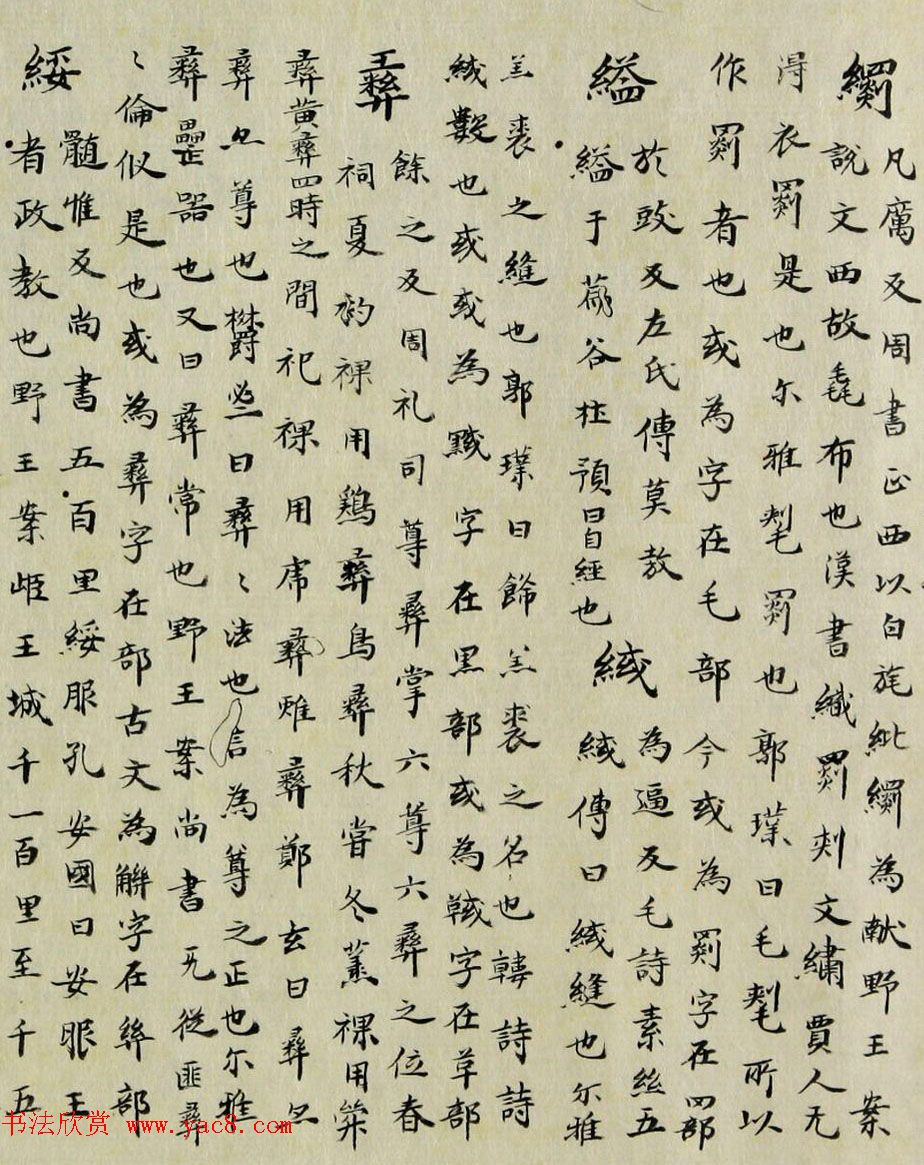 繝凡厲反周書正西以白旄紕繝為献野王案
說文西故毳布也漢書織罽刾文繡賈人无
淂衣罽是也尓雅氂罽也郭璞曰毛氂所以
作罽者也或為字在毛部今或為罽字在罒部
縊於豉反左氏傳莫敖
縊于蕪谷杜預曰自經也
緎為逼反毛詩素絲五
緎傳曰緎縫也尓雅
羔裘之縫也郭璞曰餙羔裘之名也韓詩詩
緎數也或或為黬字在黒部或為字在草部
彝餘之反周礼司尊彝掌六尊六彝之位春
祠夏礿祼用鶏彝鳥彝秋嘗冬蒸祼用斝
彝黄彝四時之間祀祼用席彝雖彝鄭玄曰彝
彝尊也欝鬯曰彝〻法也言為尊之正也尓雅
彝罍器也又曰彝常也野王案尚書无従匪彝
〻倫似是也或為彝字在部古文為字在絲部
綏髄惟反尚書五百里綏服孔安國曰安服王
者政教也野王案岠王城千一百里至千五
书法欣赏 www.yac8.com